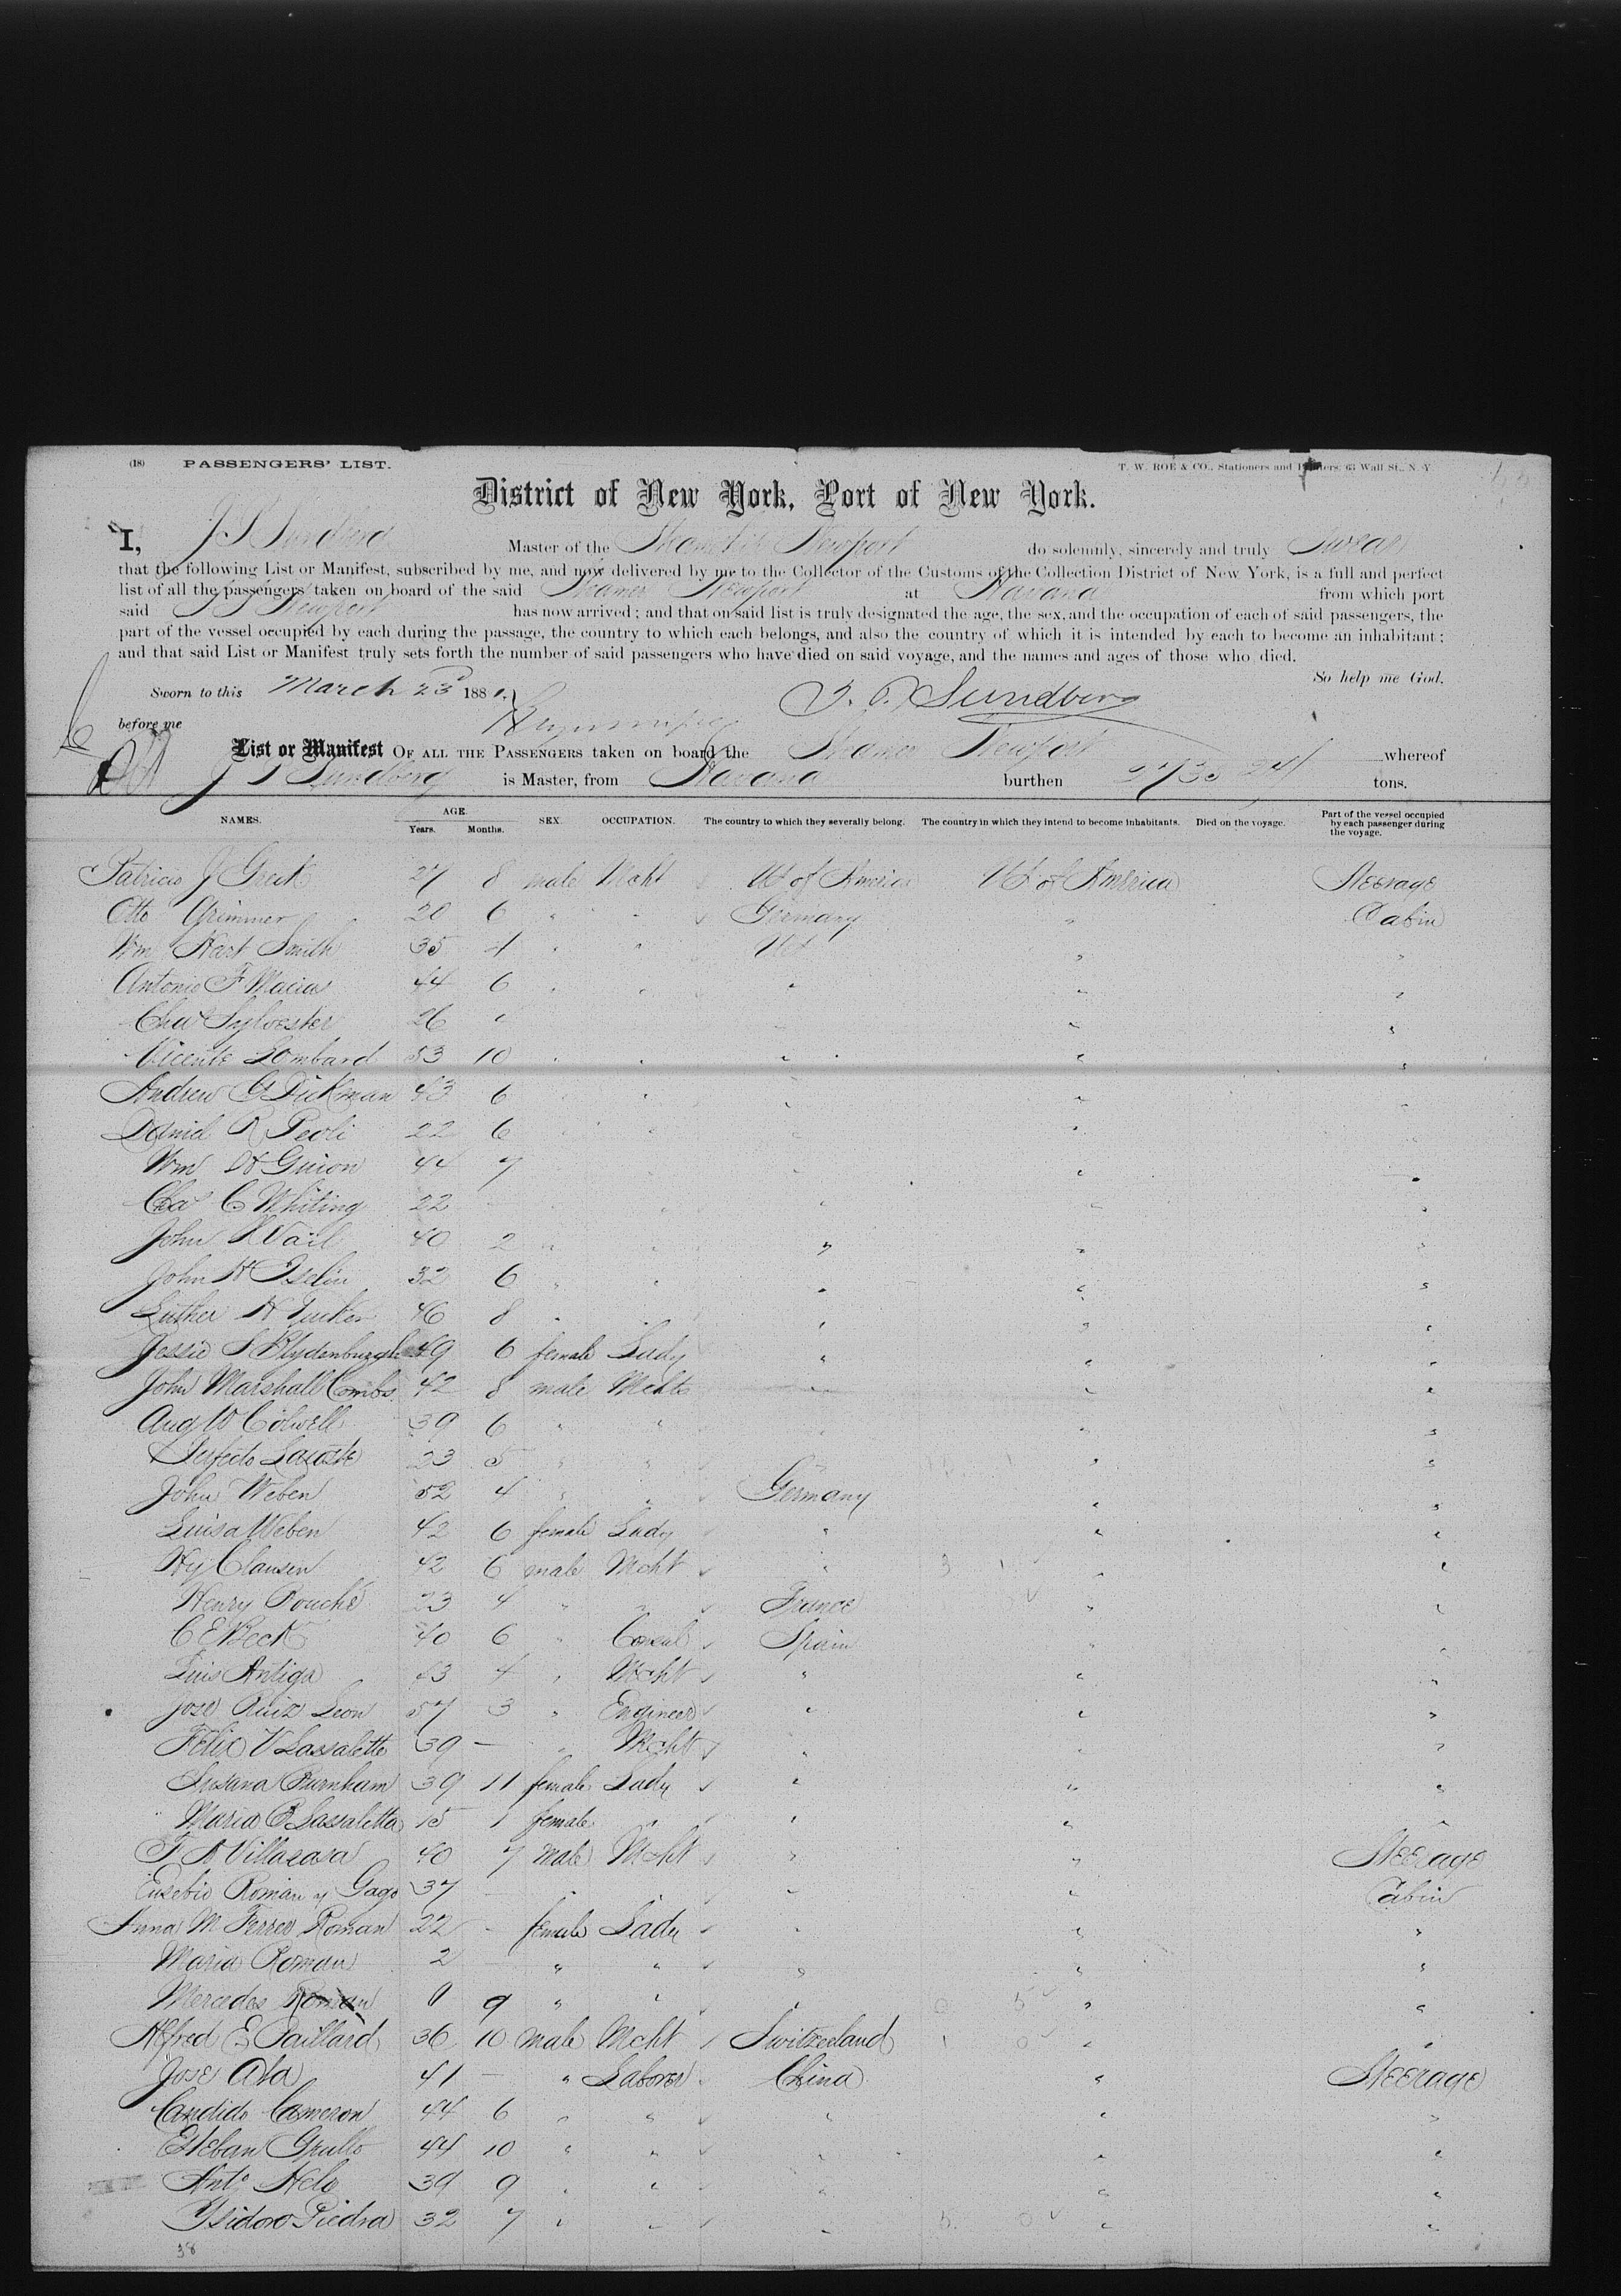 (18) PASSENGERS' LIST. T. W. ROE & CO., Stationers and Printers, 63 Wall St., N. Y.
District of New York, Port of New York.
I, J S Sundberg Master of the Steamship Newport do solemnly, sincerely and truly Swear
that the following List or Manifest, subscribed by me, and now delivered by me to the Collector of the Customs of the Collection District of New York, is a full and perfect
list of all the passengers taken on board of the said Steamer Newport at Havana from which port
said SS Newport has now arrived; and that on said list is truly designated the age, the sex, and the occupation of each of said passengers, the
part of the vessel occupied by each during the passage, the country to which each belongs, and also the country of which it is intended by each to become an inhabitant;
and that said List or Manifest truly sets forth the number of said passengers who have died on said voyage, and the names and ages of those who died.
So help me God.
Sworn to this March 23d 188 Sundberg
before me
List or Manifest OF ALL THE PASSENGERS taken on board the Steamer Newport whereof
J S Sundberg is Master, from Havana burthen 2735 tons.
NAMES. AGE. Years. Months. SEX. OCCUPATION. The country to which they severally belong. The country in which they intend to become inhabitants. Died on the voyage. Part of the vessel occupied by each passenger during the voyage.
27 8 male Mcht US of America US of America Steerage
Otto Grimmer 20 6 " " Germany " Cabin
Wm Hart Smith 35 4 " " US " "
Antonio F Macias 44 6 " " " " "
Chas Sylvester 26 " " "
Vicente Lombard 53 10 " " " " "
Andrew G Dickman 43 6 " " " " "
David R Peoli 22 6 " " " " "
Wm H Guion 44 7 " "
Chas C Whiting 22 " " " "
John Vail 40 2 " " " " "
John H Iselin 32 6 " " " " "
Luther H Tucker 46 8 " " " " "
Jessie S Blydenburgh 49 6 female Lady " " "
John Marshall Combs 42 8 male Mchts " " "
Aug W Colwell 39 6 " " " " "
Perfecto Lacoste 23 5 " " " " "
John Weben 52 4 " " Germany " "
Luisa Weben 42 6 female Lady " " "
Hy Clausen 42 6 male Mcht " " "
Henry Rouché 23 4 " " France " "
C E Beck 40 6 " Consul Spain " "
Luis Antiga 43 4 " Mcht " " "
Jose Ruiz Leon 57 3 " Engineer " " "
Felix V Lassaletta 39 — " Mcht " " "
Susana Burnham 39 11 female Lady " " "
Maria B Lassaletta 15 1 female " " " "
Villacasa 40 7 male Mcht " " Steerage
Eusebio Roman y Gago 37 — " " " Cabin
Anna M Ferrer Roman 22 — female Lady " " "
Maria Roman 2 — " " " " "
Mercedes Roman 0 9 " " " " "
Alfred E Paillard 36 10 male Mcht Switzerland " "
Jose Ata 41 — " Laborer China " Steerage
Candido Cameron 44 6 " " " " "
Esteban Grullo 44 10 " " " " "
Anto Helo 39 9 " " " " "
Ysidoro Piedra 32 7 " " " " "
38